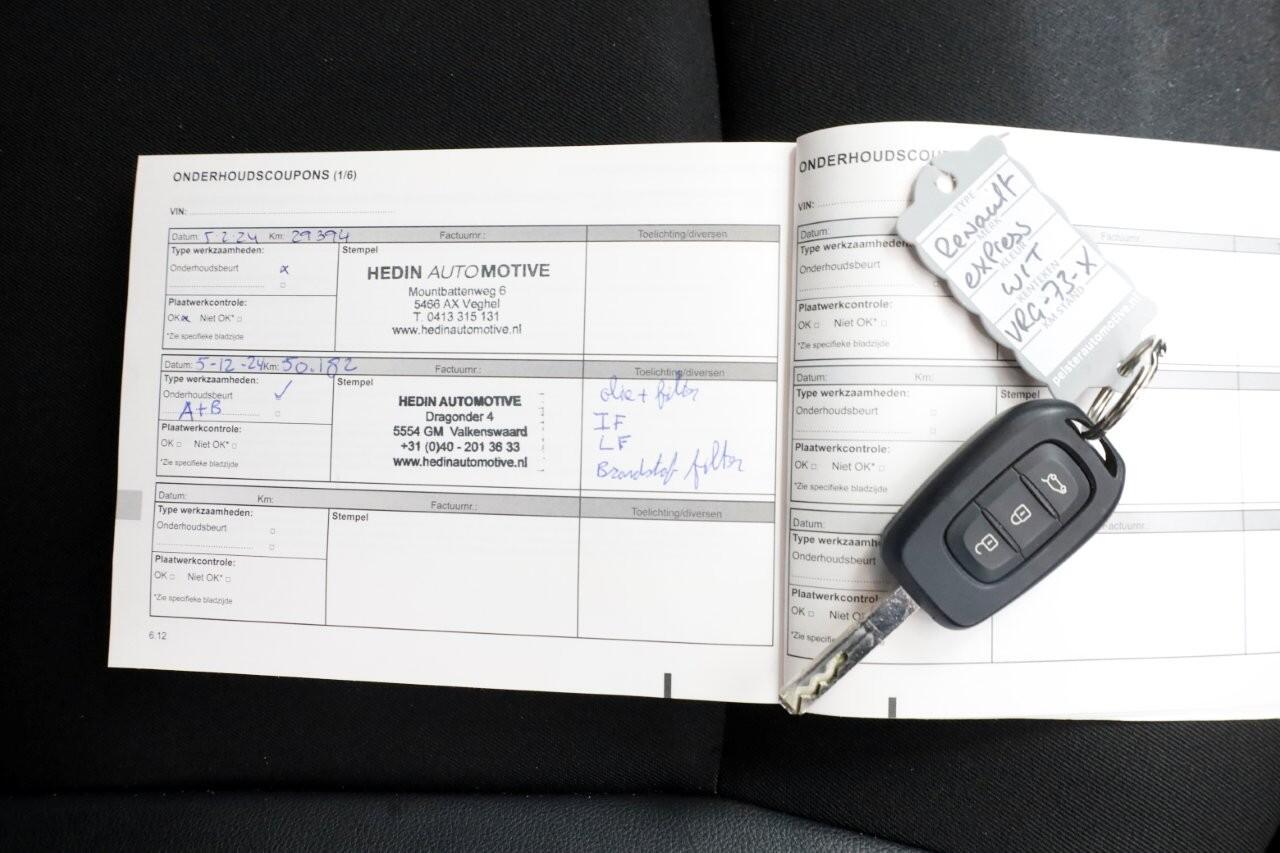 ONDERHOUDSCOUPONS (1/6)
VIN:
Datum: 5-2-24 Km: 29394 Factuurnr.: Toelichting/diversen
Type werkzaamheden:
Onderhoudsbeurt x
Plaatwerkcontrole:
OK x Niet OK*
*Zie specifieke bladzijde
Stempel
HEDIN AUTOMOTIVE
Mountbattenweg 6
5466 AX Veghel
T. 0413 315 131
www.hedinautomotive.nl
Datum: 5-12-24 Km: 50.182 Factuurnr.: Toelichting/diversen
Type werkzaamheden:
Onderhoudsbeurt ✓
A+B
Plaatwerkcontrole:
OK Niet OK*
*Zie specifieke bladzijde
Stempel
HEDIN AUTOMOTIVE
Dragonder 4
5554 GM Valkenswaard
+31 (0)40 - 201 36 33
www.hedinautomotive.nl
olie + filter
IF
LF
Brandstof filter
Datum: Km: Factuurnr.: Toelichting/diversen
Type werkzaamheden:
Onderhoudsbeurt
Plaatwerkcontrole:
OK Niet OK*
*Zie specifieke bladzijde
Stempel
6.12
ONDERHOUDSCOU
VIN:
Datum: Factuurnr.
Type werkzaamheden
Onderhoudsbeurt
Plaatwerkcontrole:
OK Niet OK*
*Zie specifieke bladzijde
Datum: Km:
Type werkzaamheden:
Onderhoudsbeurt
Plaatwerkcontrole:
OK Niet OK*
*Zie specifieke bladzijde
Stempel
Datum: Factuurnr.:
Type werkzaamh
Onderhoudsbeurt
Plaatwerkcontrole
OK Niet O
*Zie specifi
TYPE
Renault
MERK
express
KLEUR
WIT
KENTEKEN
VRG-73-X
KM STAND
pelsterautomotive.nl